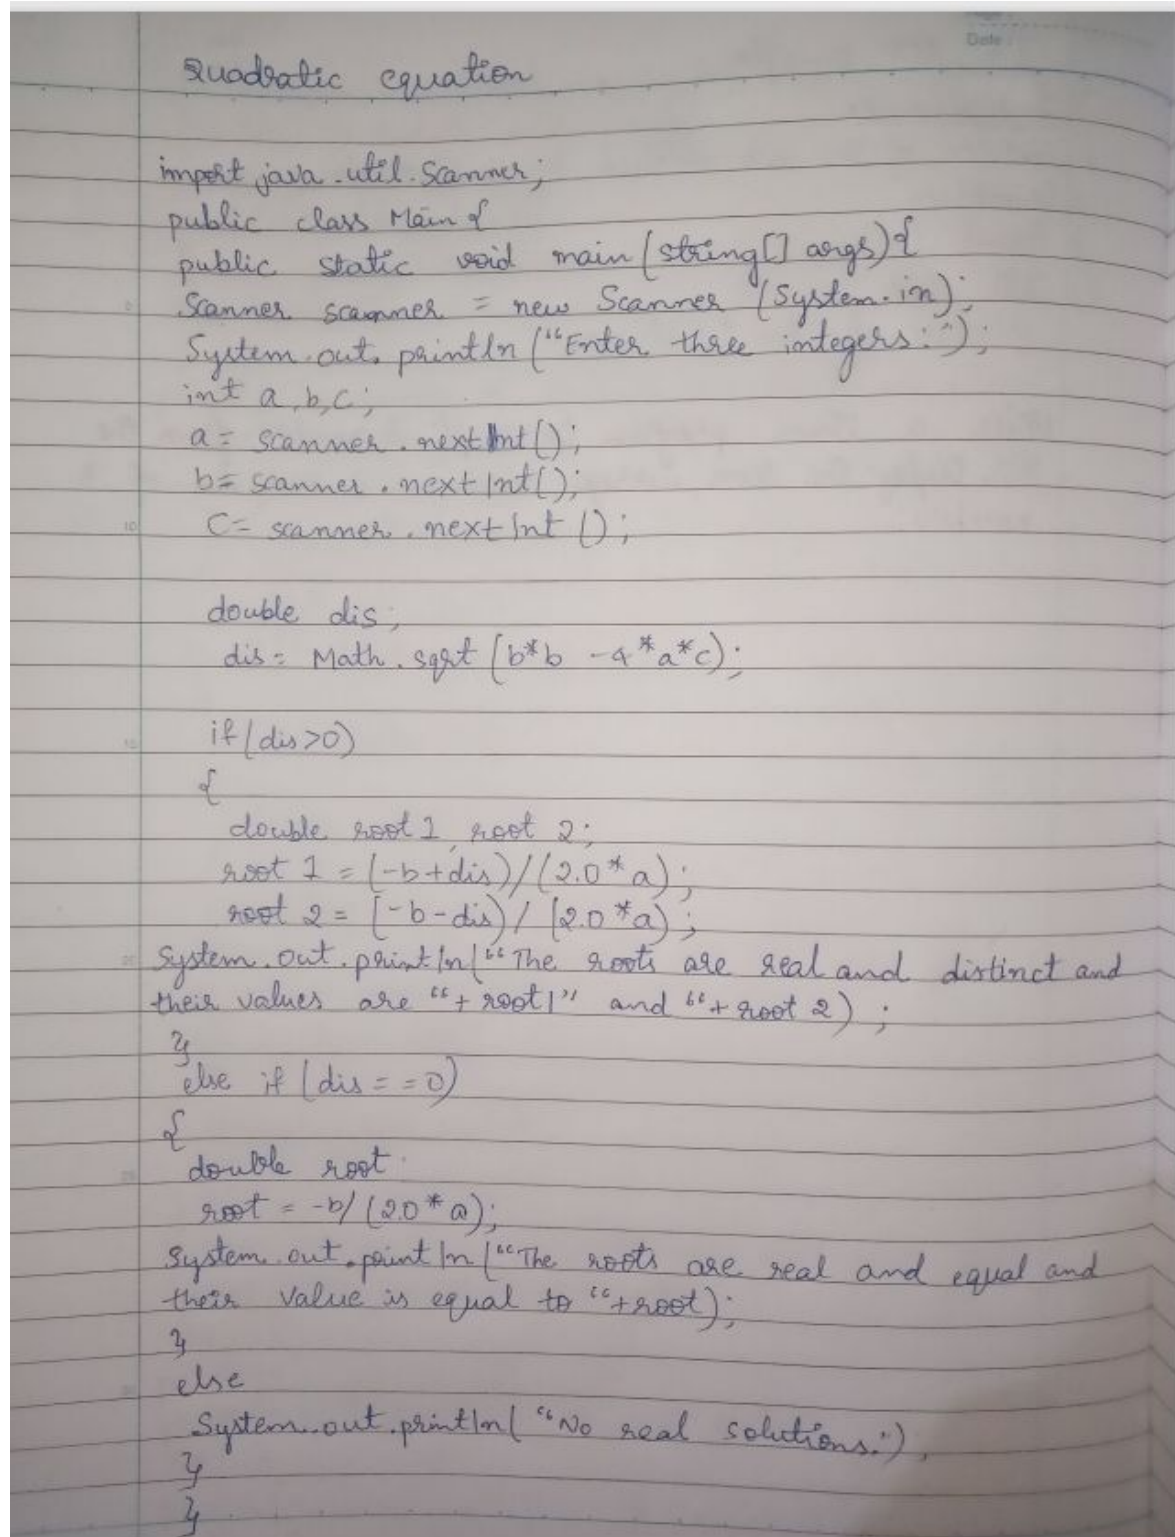 Date :
Quadratic equation
import java.util.Scanner;
public class Main {
public static void main (string[] args){
Scanner scanner = new Scanner (System.in);
System.out.println ("Enter three integers:");
int a, b, c;
a = scanner.nextInt();
b = scanner.nextInt();
10 c = scanner.nextInt ();
double dis;
dis = Math.sqrt (b*b -4*a*c);
15 if (dis>0)
{
double root1, root 2;
root 1 = (-b+dis)/(2.0*a);
root 2 = (-b-dis)/(2.0*a);
20 System.out.println("The roots are real and distinct and
their values are "+root1" and "+root 2);
}
else if (dis==0)
{
25 double root
root = -b/(2.0*a);
System.out.println("The roots are real and equal and
their value is equal to "+root);
}
else
System.out.println("No real solutions.")
}
}